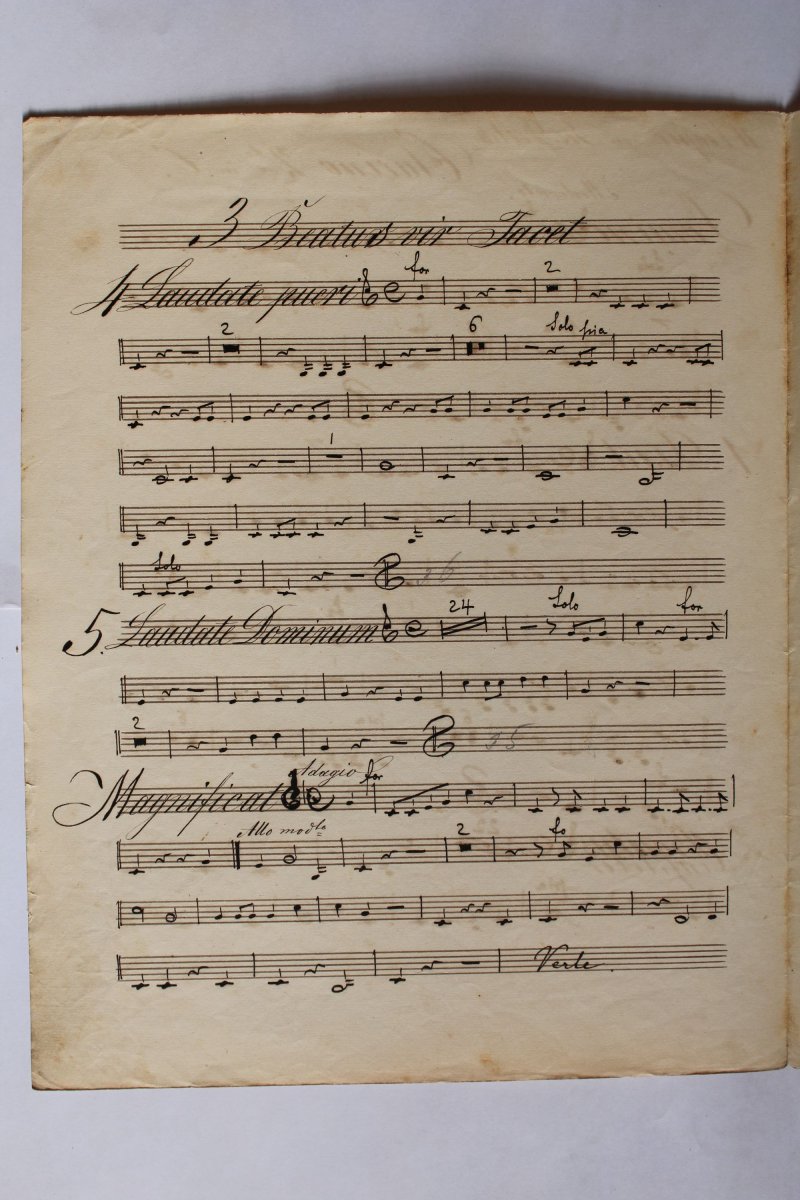 3 Beatus vir Tacet
4 Laudate pueri for 2
2 6 Solo pia
1
Solo 36
5. Laudate Dominum 24 Solo for
2 35
Magnificat Adagio for
Allo modto 2 fo
Verte.